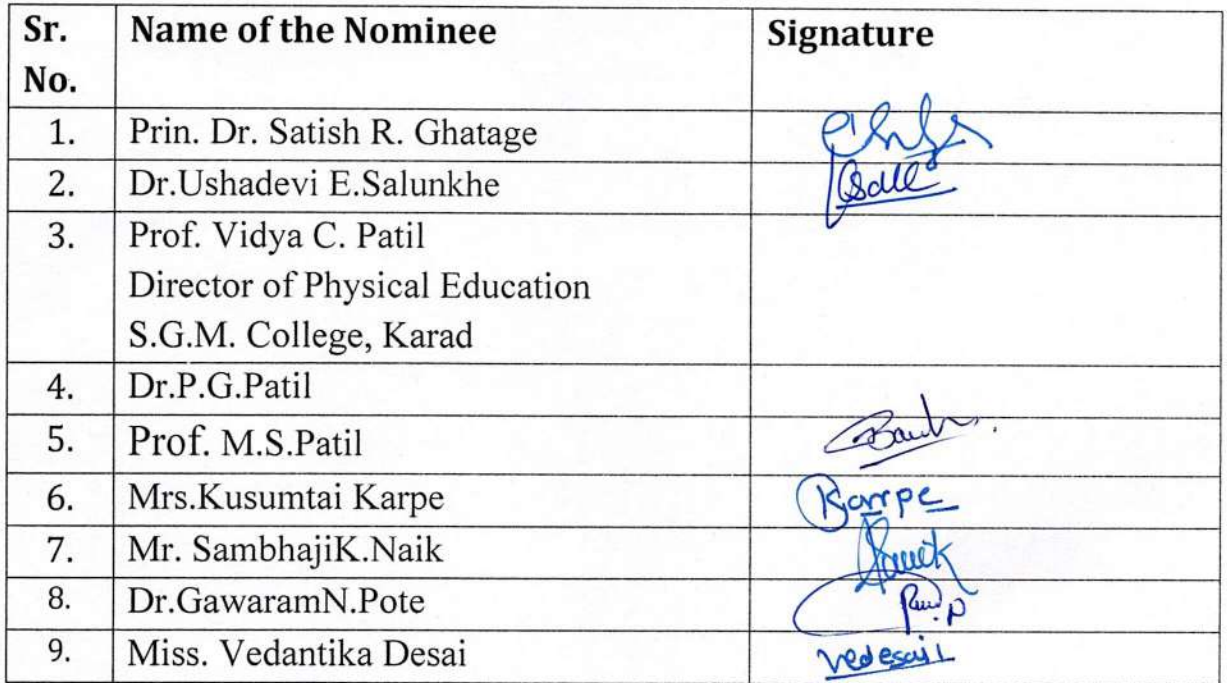 Sr. No. Name of the Nominee Signature
1. Prin. Dr. Satish R. Ghatage
2. Dr.Ushadevi E.Salunkhe
3. Prof. Vidya C. Patil
Director of Physical Education
S.G.M. College, Karad
4. Dr.P.G.Patil
5. Prof. M.S.Patil
6. Mrs.Kusumtai Karpe Karpe
7. Mr. SambhajiK.Naik
8. Dr.GawaramN.Pote
9. Miss. Vedantika Desai